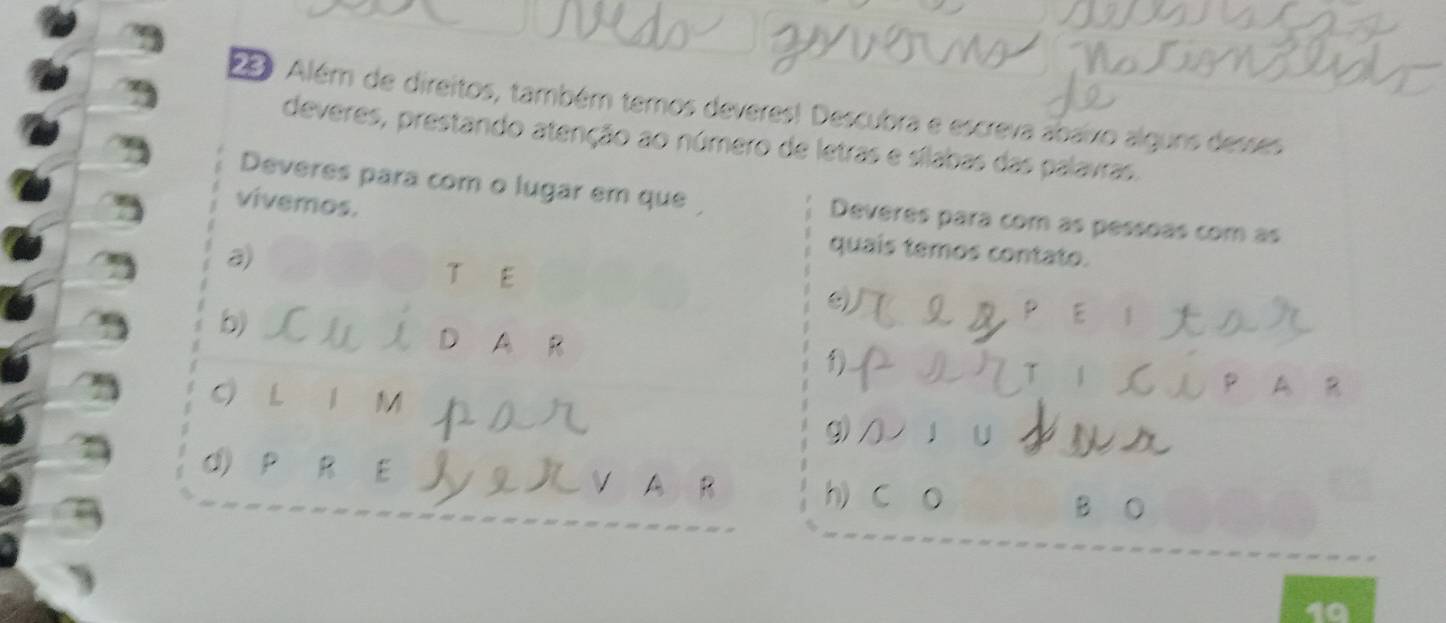 vedo governo nacionalida
de
23 Além de direitos, também temos deveres! Descubra e escreva abaixo alguns desses
deveres, prestando atenção ao número de letras e sílabas das palavras.
Deveres para com o lugar em que
vivemos.
a) T E
b) cui D A R
c) L I M par
d) P R E ser V A R
Deveres para com as pessoas com as
quais temos contato.
e) res P E I tar
f) par T I ci P A R
g) a J U dar
h) C O B O
19